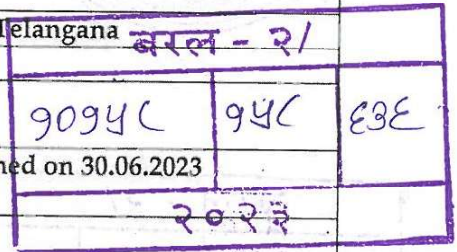 Telangana बरल - २/
१०१५८ १५८ ६३६
ned on 30.06.2023
२०२३